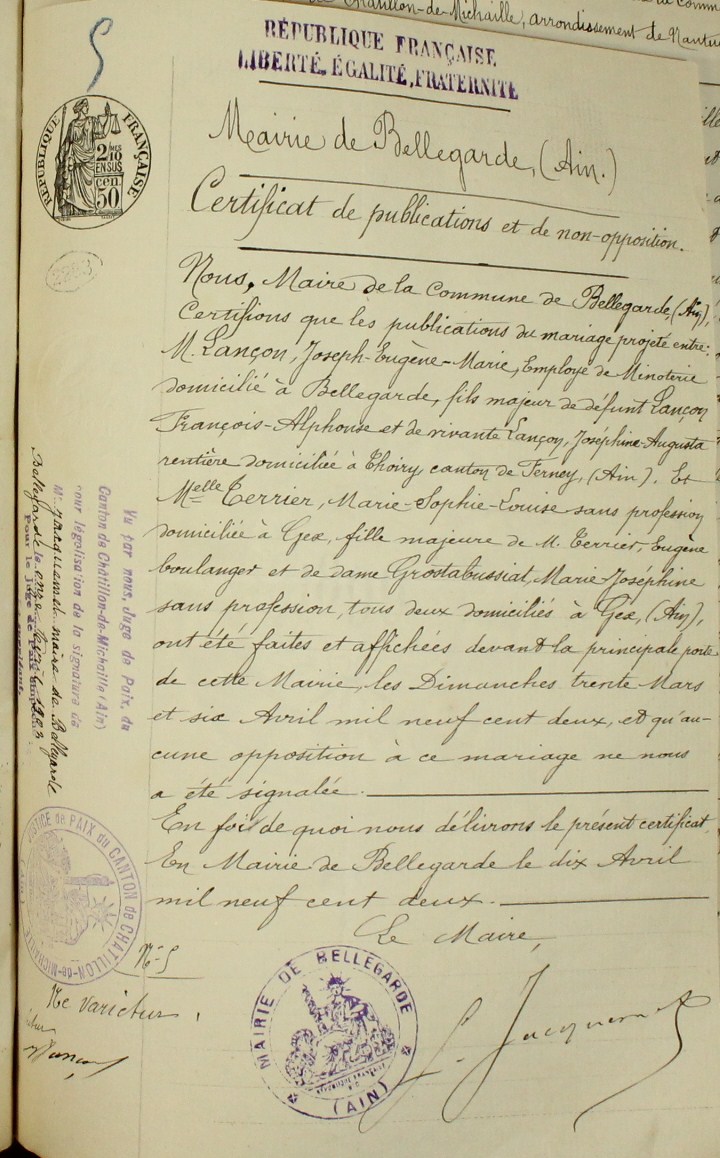 Châtillon-de-Michaille, arrondissement de Nantua
5
RÉPUBLIQUE FRANÇAISE
LIBERTÉ, ÉGALITÉ, FRATERNITÉ
RÉPUBLIQUE FRANÇAISE
2/10
EN SUS
50 cen
Mairie de Bellegarde, (Ain.)
Certificat de publications et de non-opposition.
Nous, Maire de la Commune de Bellegarde, (Ain),
Certifions que les publications du mariage projeté entre:
M. Lançon, Joseph-Eugène-Marie, Employé de Minoterie
domicilié à Bellegarde, fils majeur de défunt Lançon
François-Alphonse et de vivante Lançon, Joséphine-Augusta
rentière domiciliée à Thoiry, canton de Ferney, (Ain). Et
Melle Terrier, Marie-Sophie-Louise sans profession
domiciliée à Gex, fille majeure de M. Terrier, Eugène
boulanger et de dame Grostabussiat, Marie Joséphine
sans profession, tous deux domiciliés à Gex, (Ain),
ont été faites et affichées devant la principale porte
de cette Mairie, les Dimanches trente Mars
et six Avril mil neuf cent deux, et qu'au-
cune opposition à ce mariage ne nous
a été signalée.
En foi de quoi nous délivrons le présent certificat.
En Mairie de Bellegarde le dix Avril
mil neuf cent deux.
Le Maire,
Jacquemet
MAIRIE DE BELLEGARDE
(AIN)
Vu par nous, Juge de Paix, du
Canton de Châtillon-de-Michaille (Ain)
pour légalisation de la signature de
M. Jacquemet maire de Bellegarde
Bellegarde le onze Avril 1902
Pour le Juge de Paix
JUSTICE de PAIX du CANTON de CHATILLON-de-MICHAILLE
N° 5
Ne varietur.